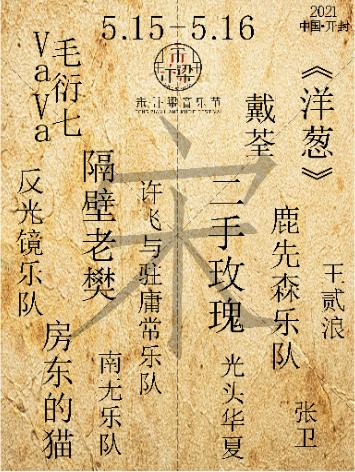 5.15-5.16
2021
中国·开封
汴梁音乐节
宋
《洋葱》
戴荃
王贰浪
鹿先森乐队
张卫
二手玫瑰
光头华夏
许飞与驻庸常乐队
隔壁老樊
南无乐队
毛衍七
VaVa
反光镜乐队
房东的猫